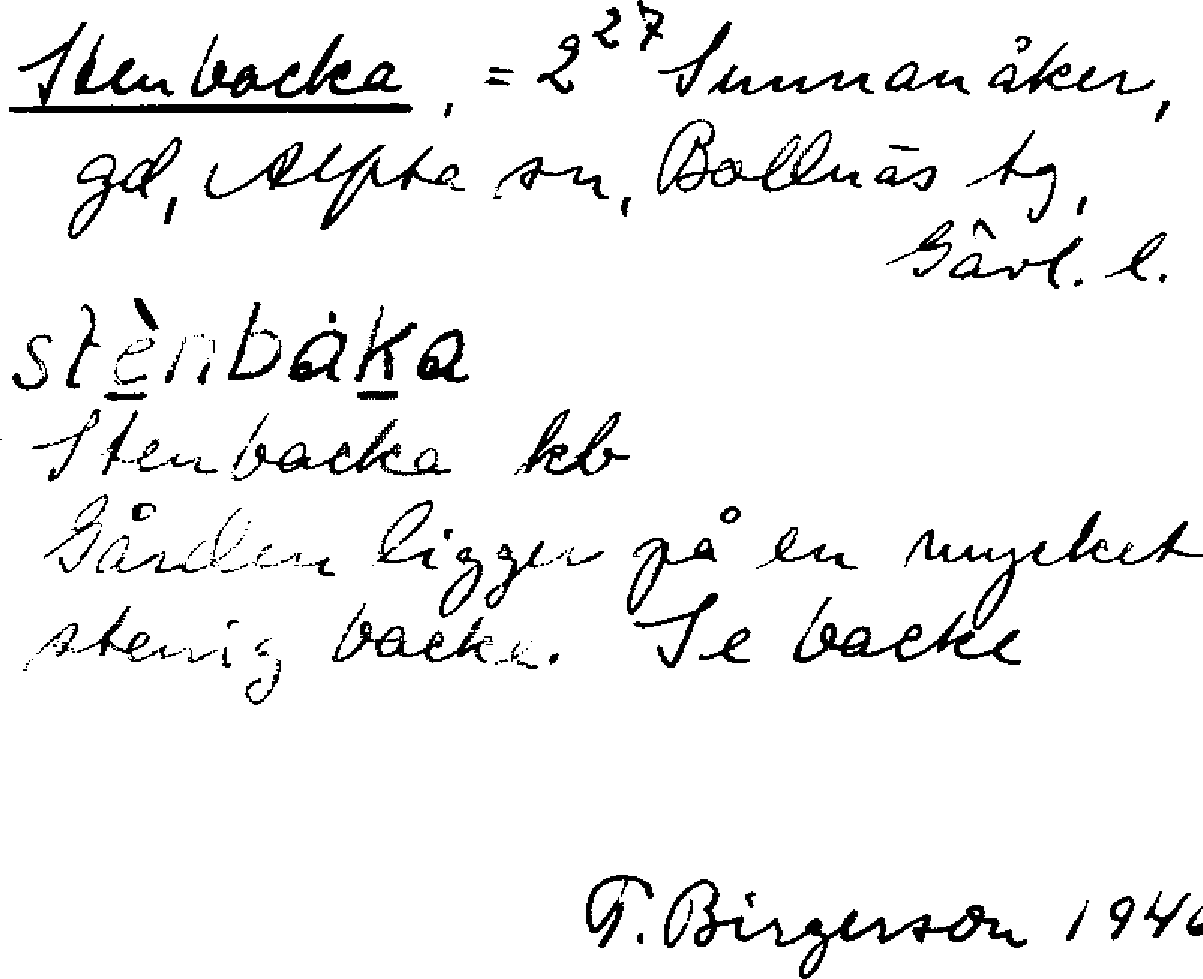 Stenbacka, = 2²⁷ Sunnanåker,
gd, Alfta sn, Bollnäs tg,
Gävl. l.
stènbáka
Stenbacka kb
Gården ligger på en mycket
stenig backe. Se backe
T. Birgerson 194